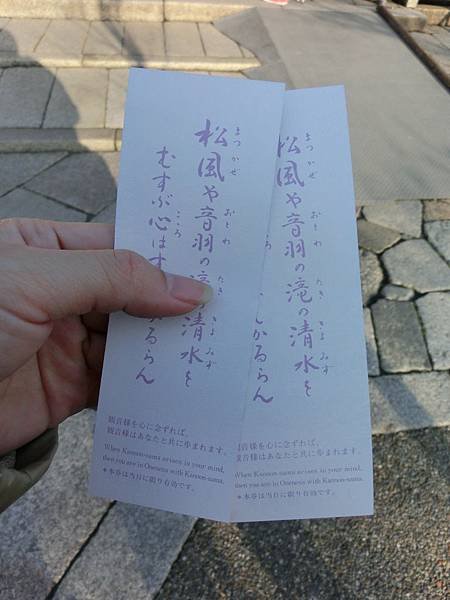 松風や音羽の滝の清水を
むすぶ心はす かるらん
観音様を心に念ずれば、
観音様はあなたと共に歩まれます。
When Kannon-sama arises in your mind,
then you are in Oneness with Kannon-sama.
＊本券は当日に限り有効です。
松風や音羽の滝の清水を
しかるらん
観音様を心に念ずれば、
観音様はあなたと共に歩まれます。
When Kannon-sama arises in your mind,
then you are in Oneness with Kannon-sama.
＊本券は当日に限り有効です。